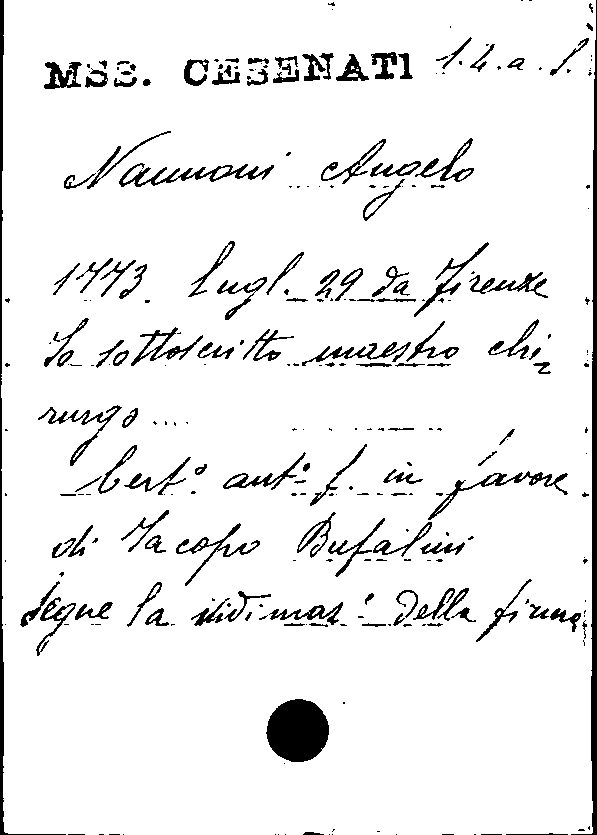 MSS. CESENATI 1.2.a.f.
Nannoni Angelo
1773. Lugl. 29 da Firenze
Io sottoscritto maestro chi=
rurgo ....
Cert.° aut.° f. in favore
di Jacopo Bufalini
Segue la vidimaz.e della firma